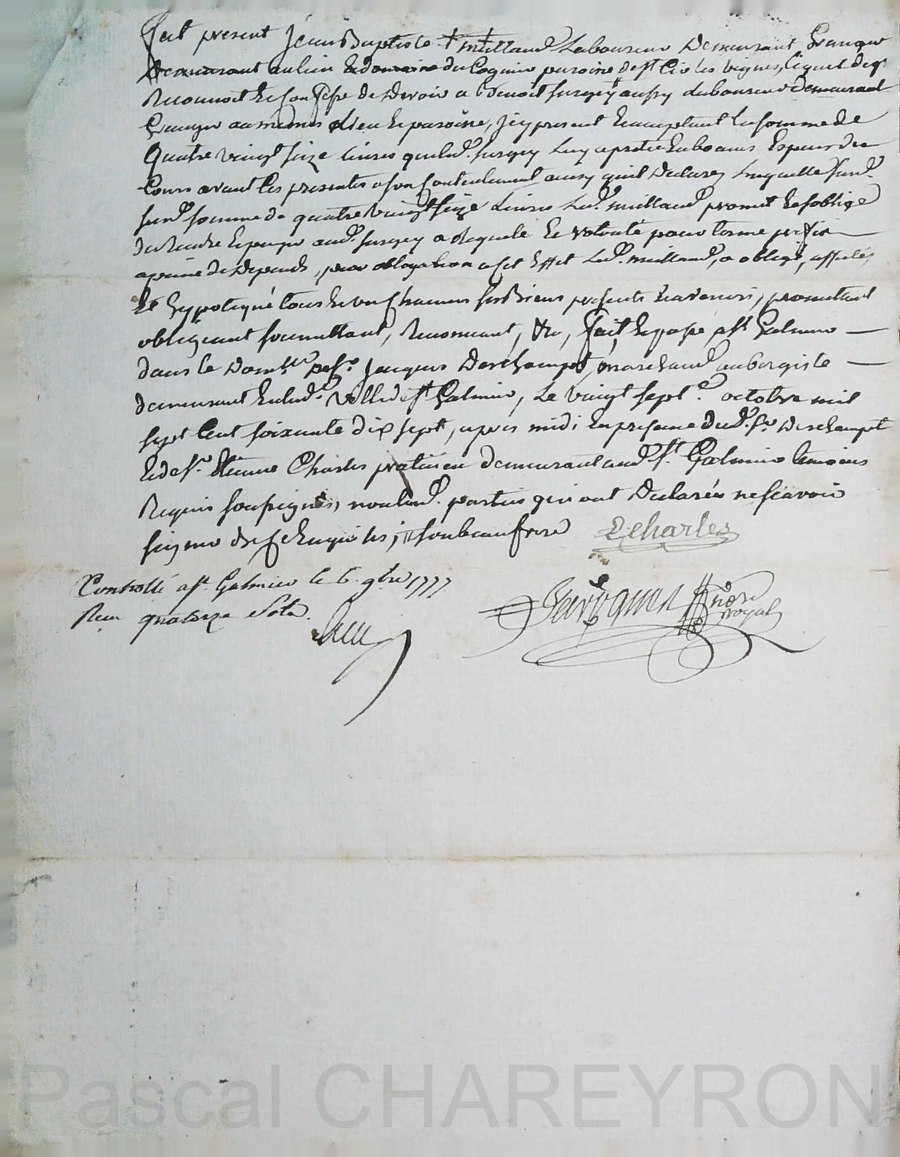 fut present Jean Baptiste millaud Laboureur Demeurant Granger
au lieu et domaine du Coquin paroisse de st Cir les vignes, lequel de gré
Reconnoit et Confesse de Devoir a Benoit furgey aussy laboureur demeurant
Granger au mesme Lieu et paroisse, icy present et acceptant la somme de
quatre vingt seize livres que led. furgey luy a preté en bonnes Especes du
Cours avant les presentes a son Contentement ainsy qu'il Declare, Laquelle sud.
somme de quatre vingt seize Livres Led. millaud promet et s'oblige
de Rendre et payer aud. furgey a sa Requete et volonté pour terme prefix
a peine de Depends, pour obligation a cet Effet Led. millaud, a obligé, affecté,
Et hypotequé tous et un Chacun ses Biens presents et avenir, promettant
obligeant soumettant, Renoncant, &c, fait et passé a st Galmier
dans le Domlle de sr. Jacques Deschampt, marchand aubergiste
demeurant en lad. Ville de st Galmier, Le vingt sept e. octobre mil
sept Cent soixante dix sept, apres midi En presence dud. sr. Deschampt
et de sr. Etienne Charles praticien demeurant aud. st. Galmier temoins
Requis soussignés, non led. parties qui ont Declarés ne scavoir
signer de ce Enquis son beaufrere Echarles
Controllé a st. Galmier le 6. 9bre 1777
Recu quatorze sols
nore royal
Pascal CHAREYRON